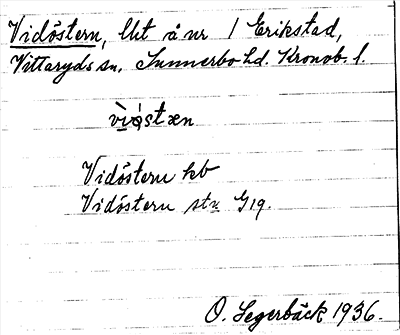 Vidöstern, lht å nr 1 Erikstad,
Vittaryds sn, Sunnerbo hd. Kronob. l.
Vidöstern kb
Vidöstern stn G19.
O. Segerbäck 1936.